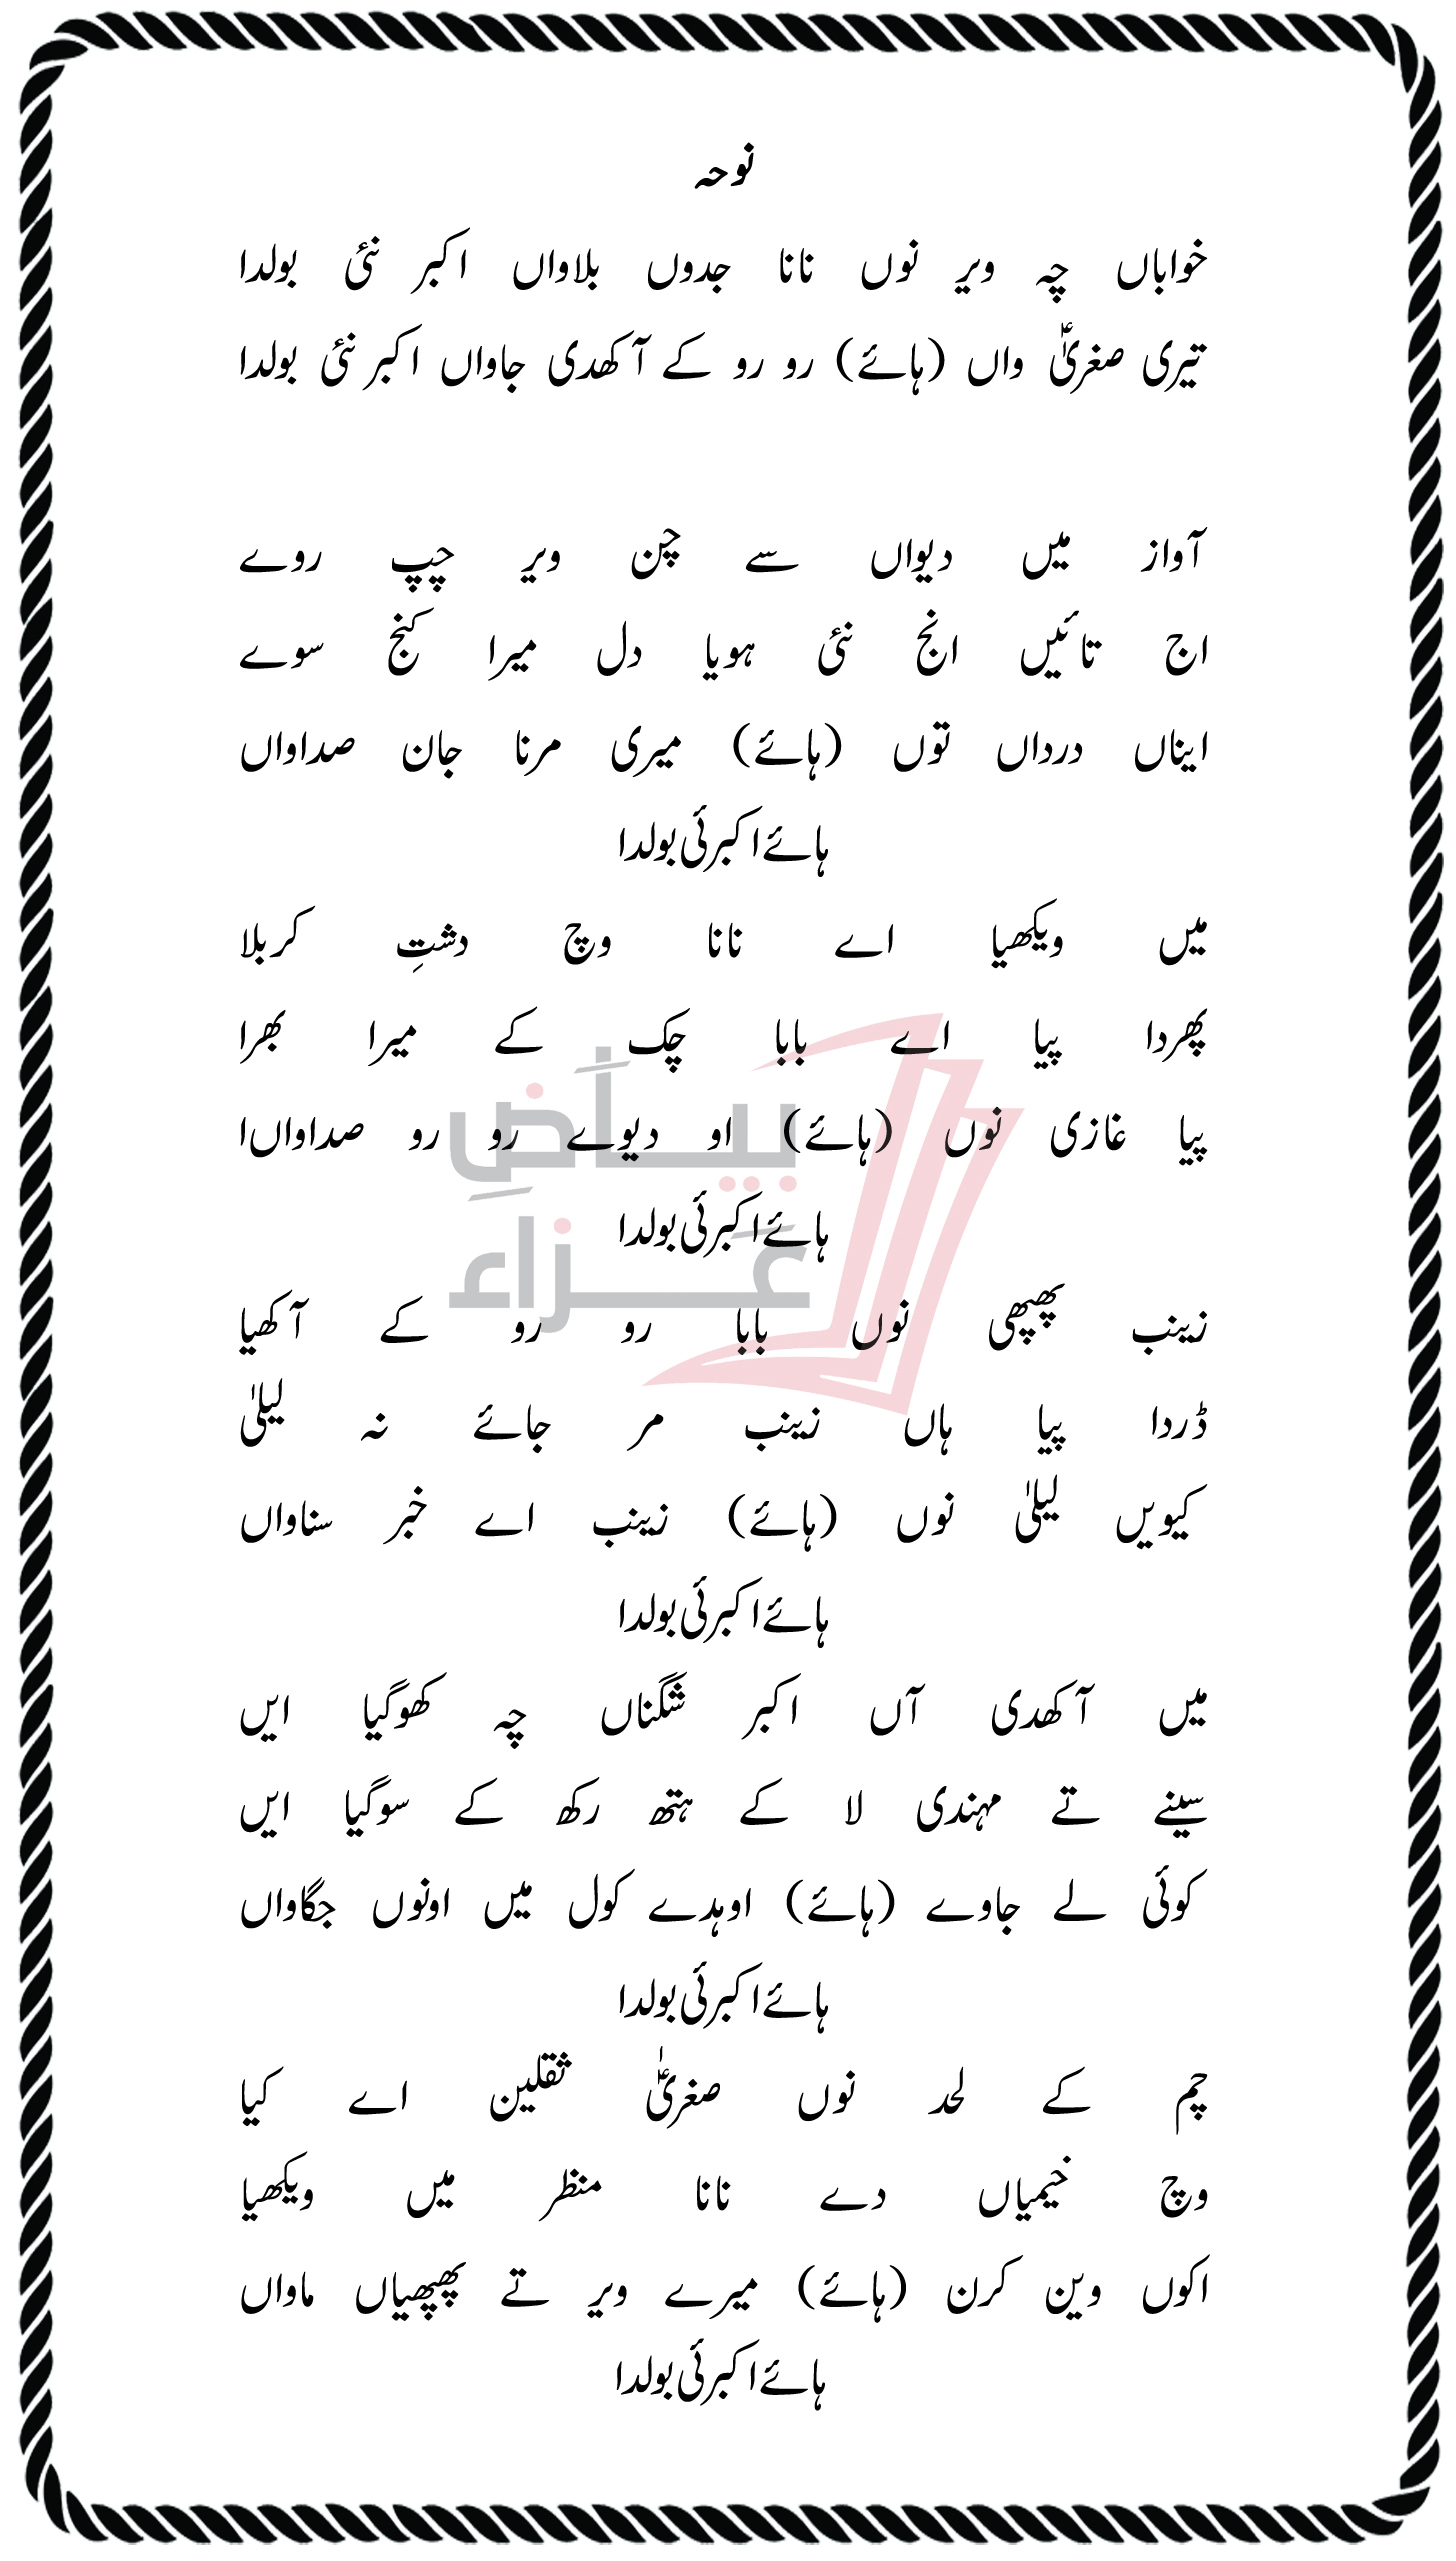 نوحہ
خواباں چہ ویر نوں نانا جدوں بلاواں اکبر نئی بولدا
تیری صغریٰؑ واں (ہائے) رو رو کے آکھدی جاواں اکبر نئی بولدا
آواز میں دیواں سے چن ویر چپ روے
اج تائیں انج نئی ہویا دل میرا کنج سوے
ایناں درداں توں (ہائے) میری مرنا جان صداواں
ہائے اکبر ئی بولدا
میں ویکھیا اے نانا وچ دشتِ کربلا
پھردا پیا اے بابا چک کے میرا بھرا
پیا غازی نوں (ہائے) او دیوے رو رو صداواںا
ہائے اکبر ئی بولدا
بیاضِ
عزاء
زینب پھپھی نوں بابا رو رو کے آکھیا
ڈردا پیا ہاں زینب مر جائے نہ لیلیٰ
کیویں لیلیٰ نوں (ہائے) زینب اے خبر سناواں
ہائے اکبر ئی بولدا
میں آکھدی آں اکبر شگناں چہ کھوگیا ایں
سینے تے مہندی لا کے ہتھ رکھ کے سوگیا ایں
کوئی لے جاوے (ہائے) اوہدے کول میں اونوں جگاواں
ہائے اکبر ئی بولدا
چم کے لحد نوں صغریٰؑ ثقلین اے کیا
وچ خیمیاں دے نانا منظر میں ویکھیا
اکوں وین کرن (ہائے) میرے ویر تے پھپھیاں ماواں
ہائے اکبر ئی بولدا